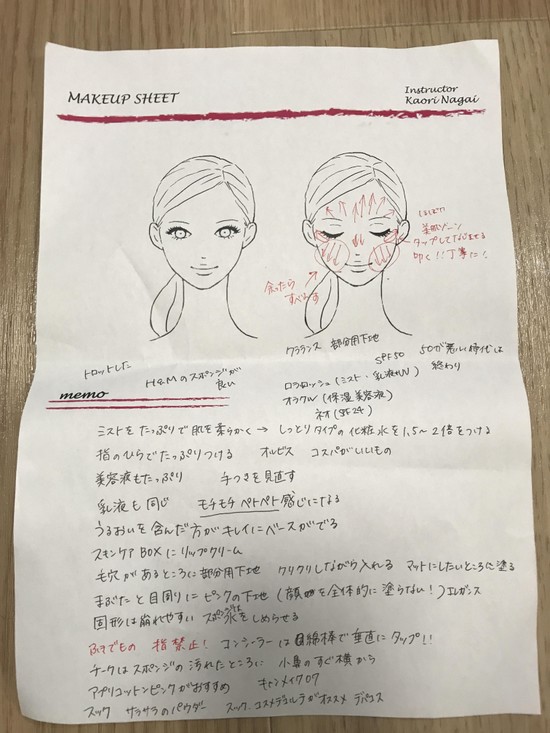 MAKEUP SHEET
Instructor
Kaori Nagai
ほほは
美肌ゾーン
タップしてなじませる
叩く!!丁寧に!
余ったら
すべらす
クラランス 部分用下地
SPF50 50が悪い時代は
終わり
トロットした
H&Mのスポンジが
良い
ロクシタン(ミスト・乳液
オラクル(保湿美容液)
ネオ
memo
ミストをたっぷりで肌を柔らかく → しっとりタイプの化粧水を1.5~2倍をつける
指のひらでたっぷりつける オルビス コスパがいいもの
美容液もたっぷり 手つきを見直す
乳液も同じ モチモチペトペト感じになる
うるおいを含んだ方がキレイにベースができる
スキンケアBOXにリップクリーム
毛穴があるところに部分用下地 クリクリしながら入れる マットにしたいところに塗る
まぶたと目周りにピンクの下地(顔を全体的に塗らない!)エレガンス
固形は崩れやすい スポンジは水をしめらせる
指禁止! コンシーラーは綿棒で垂直にタップ!
チークはスポンジの汚れたところに 小鼻のすぐ横から
アプリコットピンクがおすすめ キャンメイク07
スック サラサラのパウダー スック、コスメデコルテがオススメ デパコス